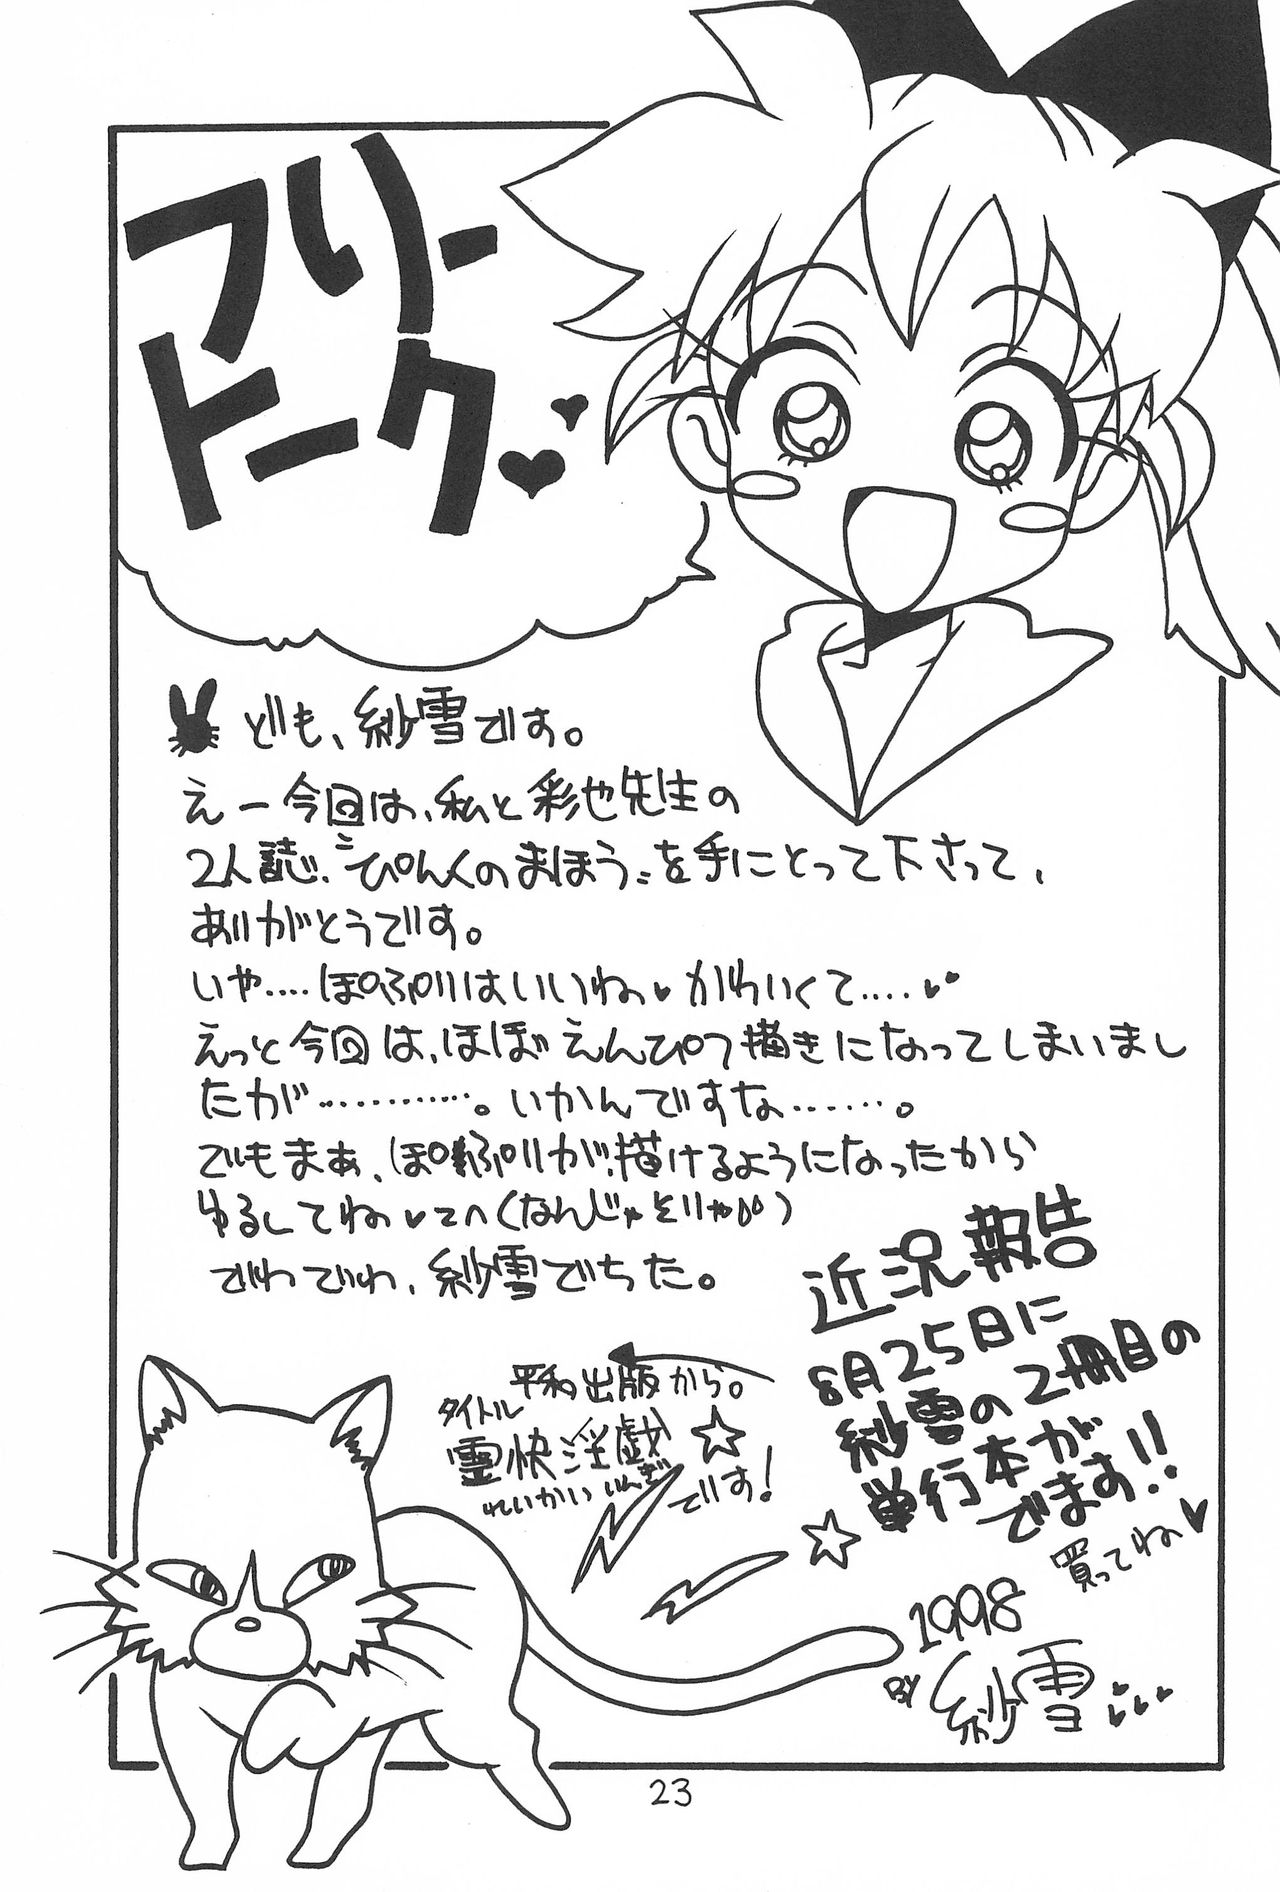 フリー
トーク
ども、紗雪です。
えー今回は、私と彩也先生の
2人誌、〝ぴんくのまほう〟を手にとって下さって、
ありがとうです。
いや‥‥ぽぷりはいいね♥かわいくて‥‥♥
えっと今回は、ほぼえんぴつ描きになってしまいまし
たが‥‥‥‥‥‥。いかんですな‥‥‥‥。
でもまぁ、ぽぷりが、描けるようになったから
ゆるしてね♥てへ(なんじゃそりゃ)
でわでわ、紗雪でちた。
近況報告
8月25日に
紗雪の2冊目の
単行本が
でます!!
買ってね♥
平和出版から。
タイトル
霊快淫戯
れいかいいんぎ
☆です!
1998
BY 紗雪
23